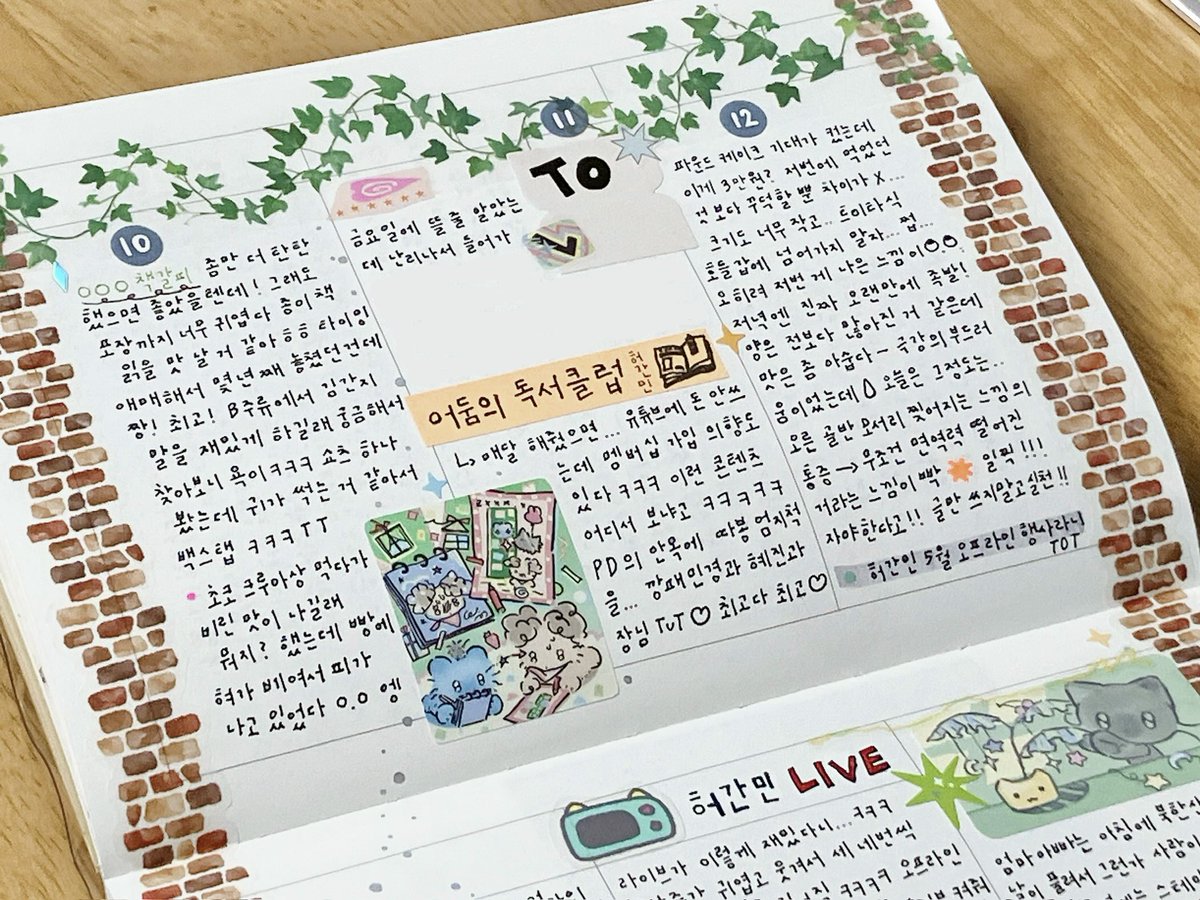 10
○○○ 책갈피 좀만 더 탄탄
했으면 좋았을텐데! 그래도
포장까지 너무 귀엽다 종이책
읽을 맛 날 거 같아ㅎㅎ 타이밍
애매해서 몇년째 놓쳤던건데
짱! 최고! B주류에서 김간지
말을 재밌게 하길래 궁금해서
찾아보니 욕이ㅋㅋㅋ 쇼츠 하나
봤는데 귀가 썩는 거 같아서
백스탭 ㅋㅋㅋ TT
초코 크루아상 먹다가
비린 맛이 나길래
뭐지? 했는데 빵에
혀가 베여서 피가
나고 있었다 0.0 엥
11
TO
금요일에 뜰 줄 알았는
데 난리나서 들어가
어둠의 독서클럽 허간민
↳ 매달 해줬으면... 유튜브에 돈 안쓰
는데 멤버십 가입 의향도
있다 ㅋㅋㅋ 이런 콘텐츠
어디서 보냐고 ㅋㅋㅋㅋㅋ
PD의 안목에 따봉 엄지척
을... 깡패인경과 혜진과
장님 TUT ♡ 최고다 최고♡
12
파운드 케이크 기대가 컸는데
이게 3만원? 저번에 먹었던
것보다 꾸덕할 뿐 차이가 X...
크기도 너무 작고... 트이타식
호들갑에 넘어가지 말자... 쩝...
오히려 저번 게 나은 느낌이
저녁엔 진짜 오랜만에 족발!
양은 전보다 많아진 거 같은데
맛은 좀 아쉽다~ 극강의 부드러
움이었는데 오늘은 그정도는..
오른 골반 모서리 찢어지는 느낌의
통증 → 무조건 면역력 떨어진
거라는 느낌이 빡 일찍!!!
자야한다고!! 글만 쓰지말고실천!!
허간인 5월 오프라인 행사라니
TOT
허간민 LIVE
라이브가 이렇게 재밌다니...ㅋㅋㅋ
귀엽고 웃겨서 세네번씩
ㅋㅋㅋㅋ 오프라인
엄마아빠는 아침에 북한산
날이 풀려서 그런가 사람이